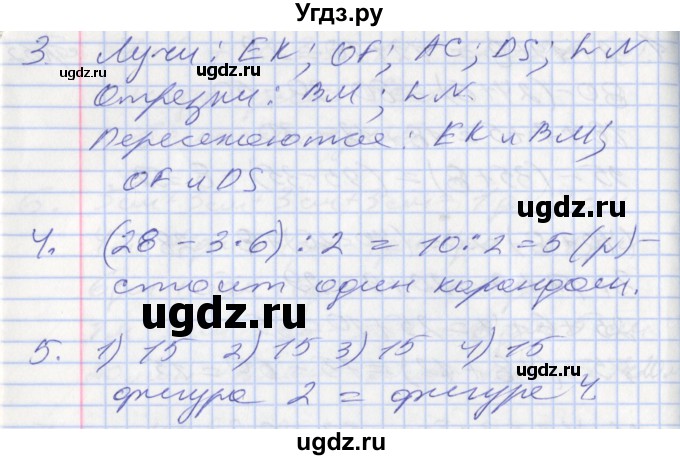 Угдз.ру
3 Лучи: EK; OF; AC; DS; LN
Отрезки: BM; LN
Пересекаются: EK и BM;
OF и DS
4. (28 - 3·6) : 2 = 10 : 2 = 5 (р) -
стоит один карандаш.
5. 1) 15 2) 15 3) 15 4) 15
фигура 2 = фигуре 4
ugdz.ru
ugdz.ru
ugdz.ru
ugdz.ru
ugdz.ru
ugdz.ru
ugdz.ru